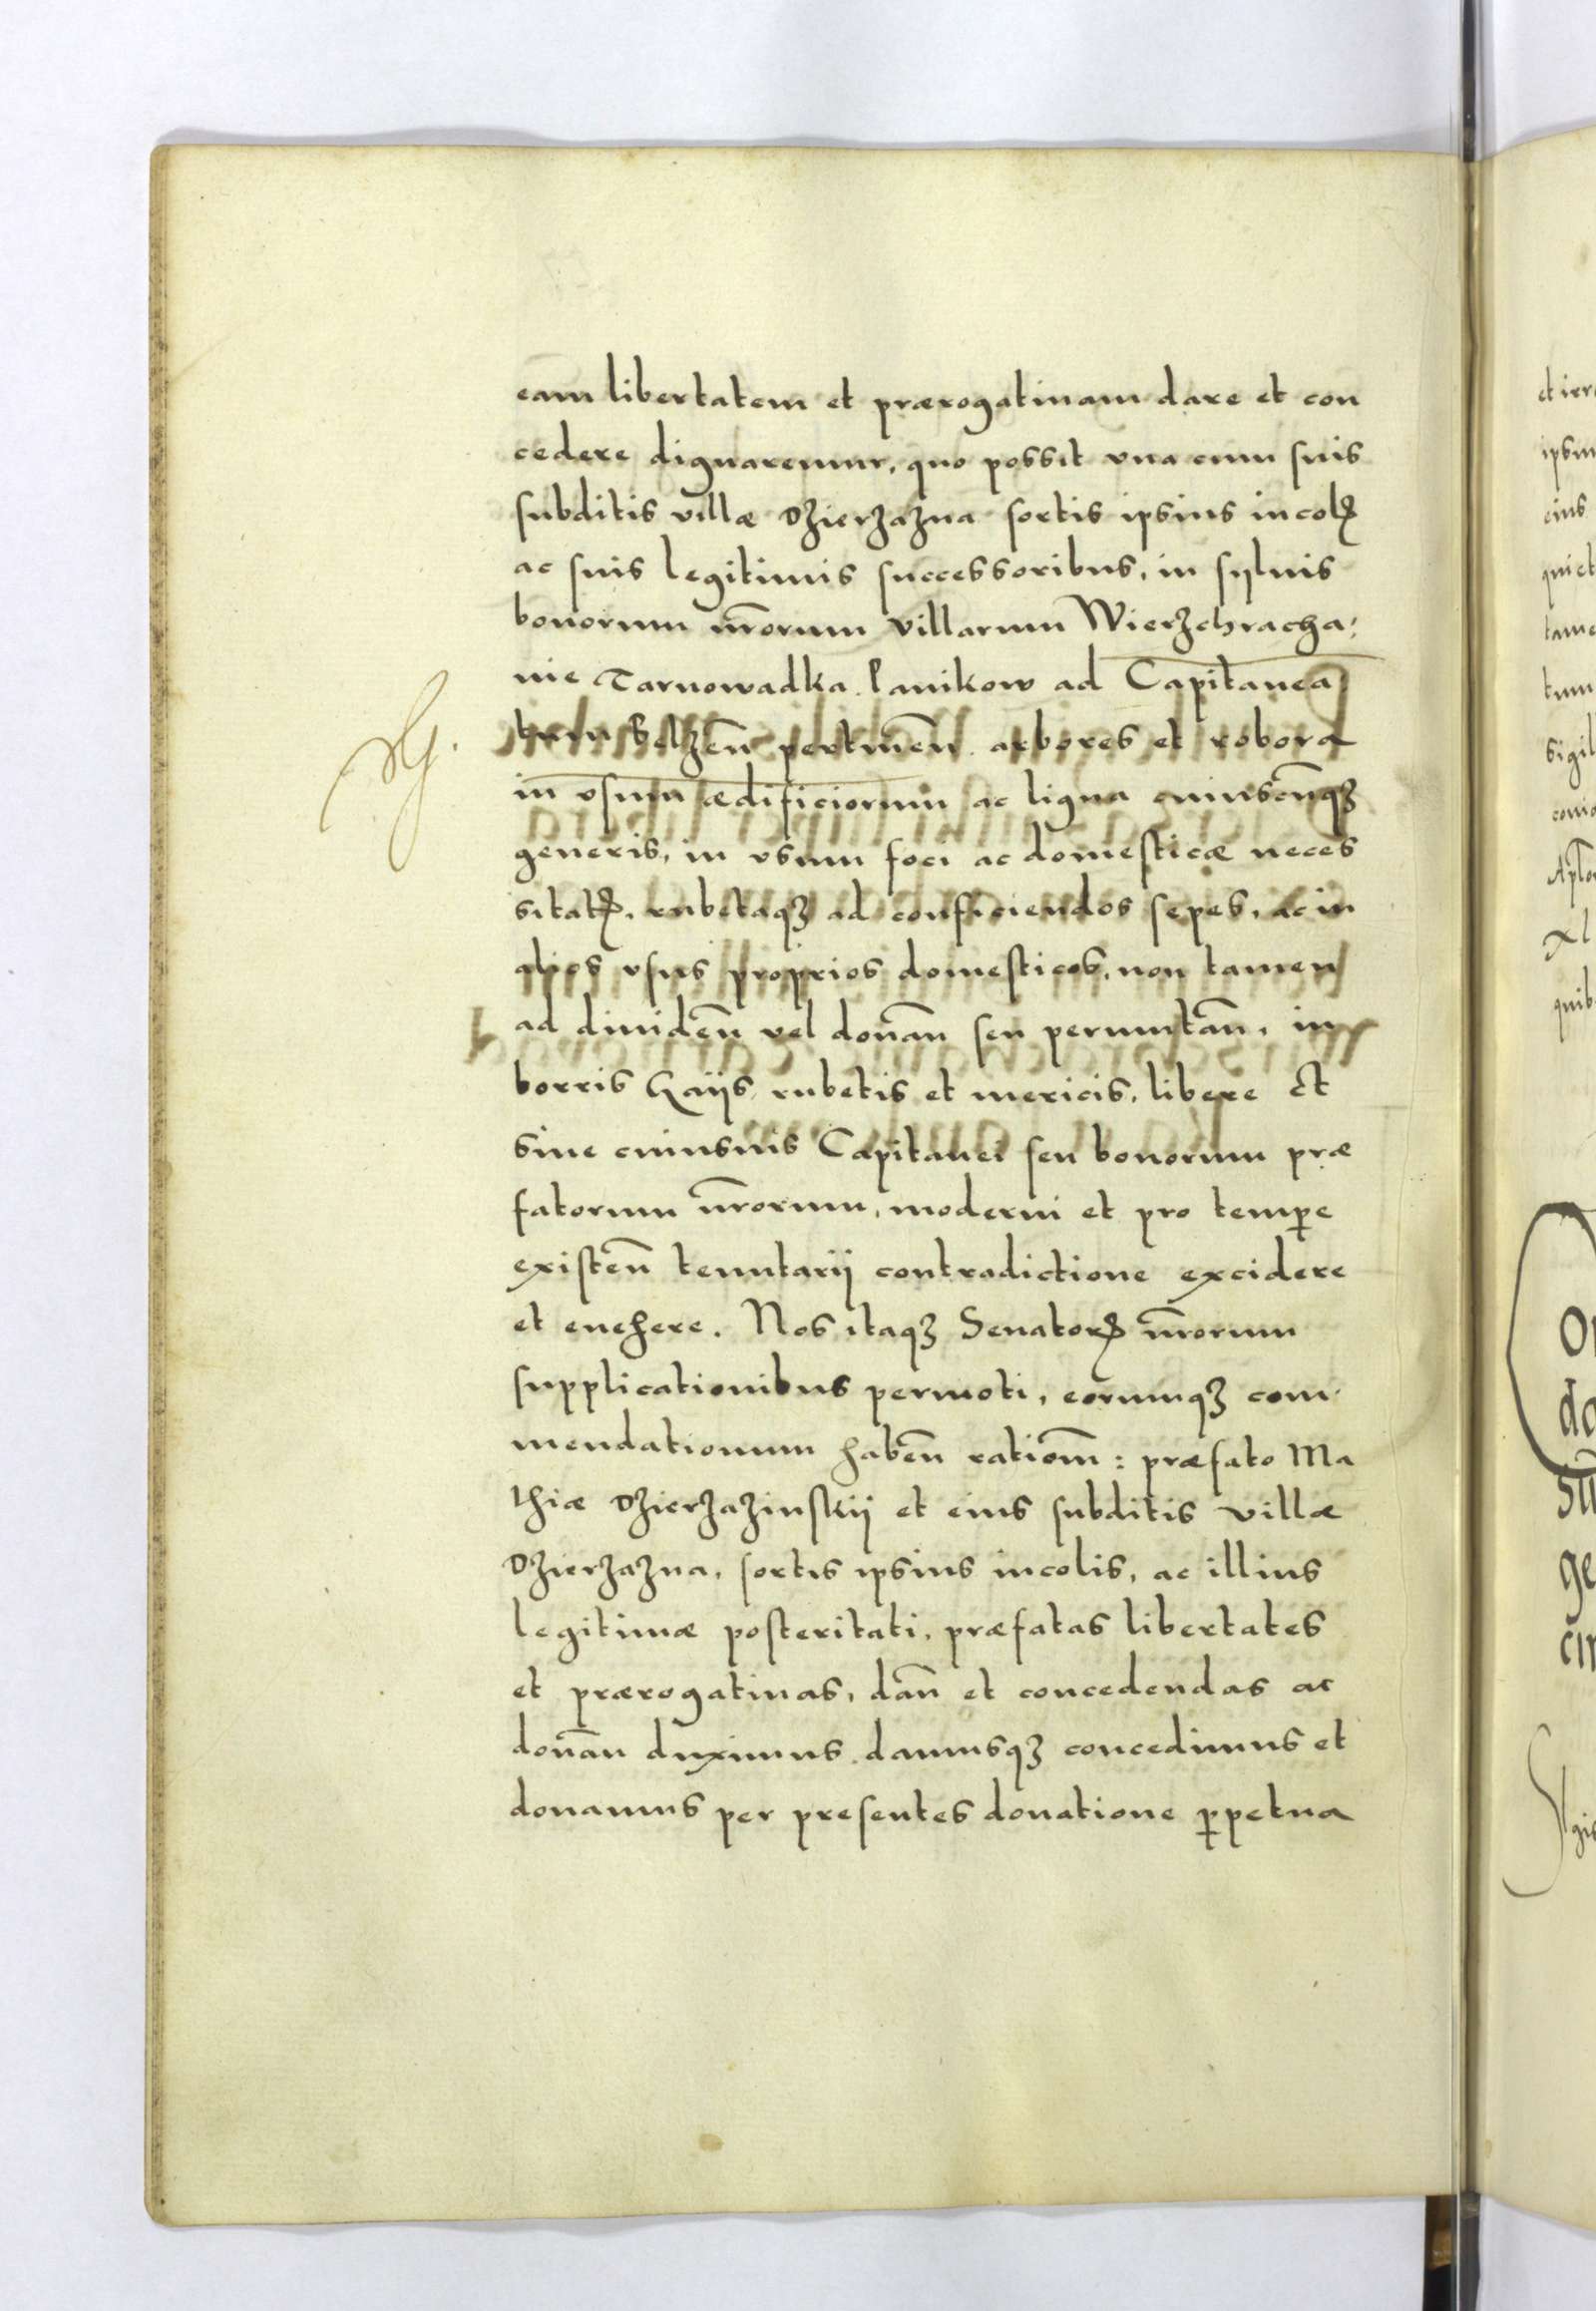 eam libertatem et prærogatiuam dare et con
cedere dignaremur, quo possit vna cum suis
subditis villæ Dzierzazna sortis ipsius incolꝭ
ac suis legitimis successoribus, in syluis
bonorum nr̄orum villarum Wierzchracha:
nie Tarnowadka Panikow ad Capitanea
tum Belzen̄ pertinen̄ arbores et robora
in vsum ædificiorum ac ligna cuiuscūqꝫ
generis, in vsum foci ac domesticæ neces
sitatꝭ, rubetaqꝫ ad conficiendos sepes, ac in
alios vsus proprios domesticos, non tamen
ad diuiden̄ vel donan̄ seu permutan̄, in
borris Gaijs rubetis et mericis, libere et
sine cuiusuis Capitanei seu bonorum præ
fatorum nr̄orum, moderni et pro tempe
existen̄ tenutarij contradictione excidere
et euehere. Nos itaqꝫ Senatorꝭ nr̄orum
supplicationibus permoti, eorumqꝫ com
mendationum haben̄ ration̄m: præfato Ma
thiæ Dzierzazinskij et eius subditis villæ
Dzierzazna, sortis ipsius incolis, ac illius
legitimæ posteritati, præfatas libertates
et prærogatiuas, dan̄ et concedendas ac
donan̄ duximus damusqꝫ concedimus et
donamus per presentes donatione ꝑpetua